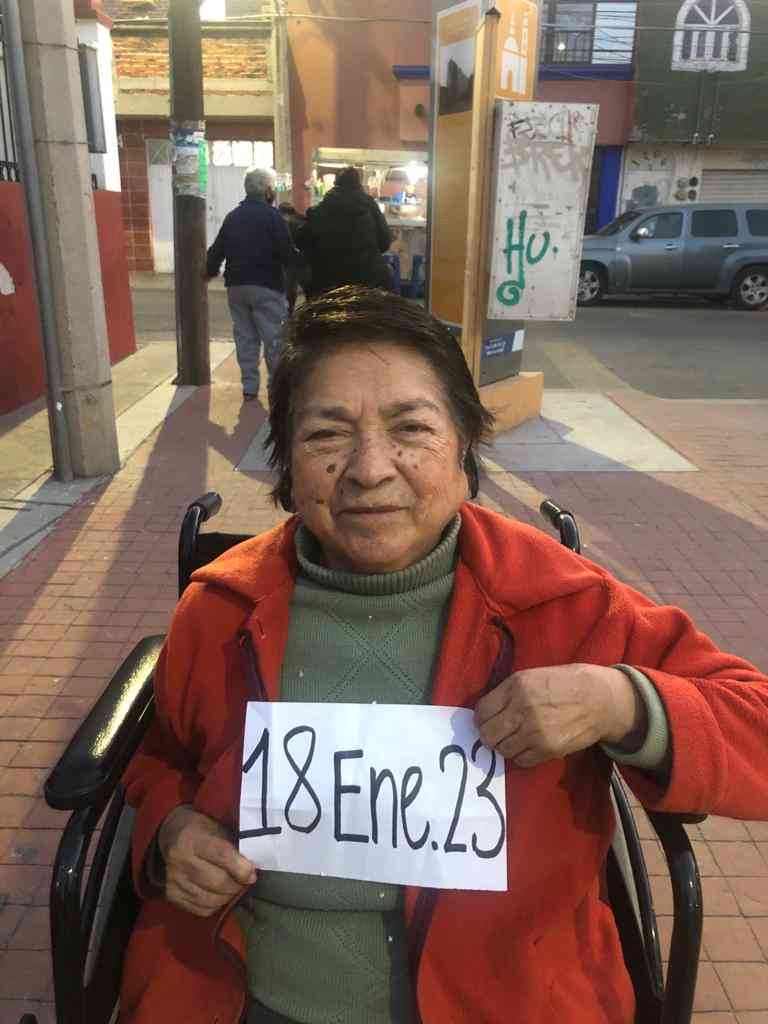 Hu.
18 Ene. 23